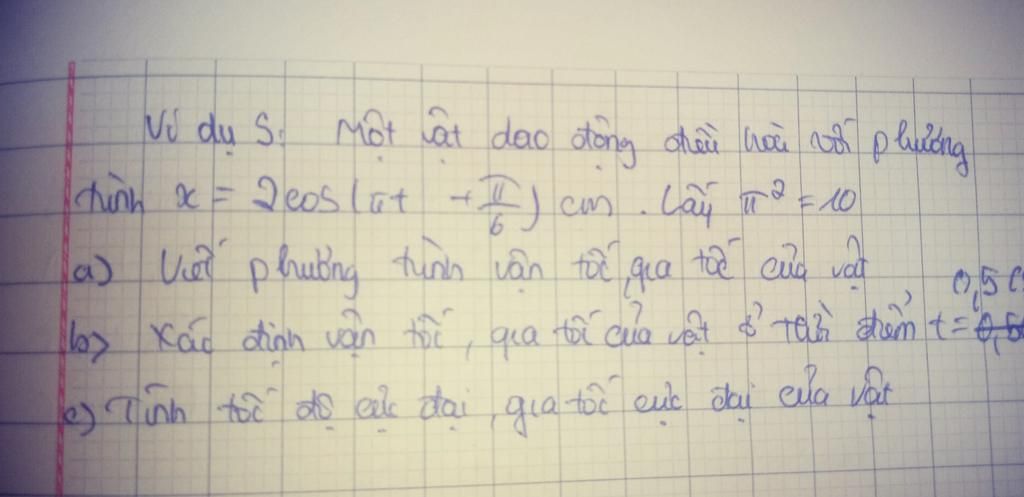 Ví dụ 5: Một vật dao động điều hoà với phương
trình x = 2cos(πt + π/6) cm. Lấy π² = 10
a) Viết phương trình vận tốc, gia tốc của vật
b) Xác định vận tốc, gia tốc của vật ở thời điểm t = 0,5 (s
c) Tính tốc độ cực đại, gia tốc cực đại của vật